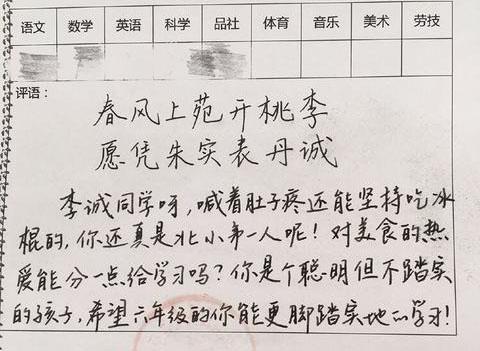 语文 数学 英语 科学 品社 体育 音乐 美术 劳技
评语：
春风上苑开桃李
愿凭朱实表丹诚
李诚同学呀，喊着肚子疼还能坚持吃冰
棍的，你还真是北小第一人呢！对美食的热
爱能分一点给学习吗？你是个聪明但不踏实
的孩子，希望六年级的你能更脚踏实地的学习！